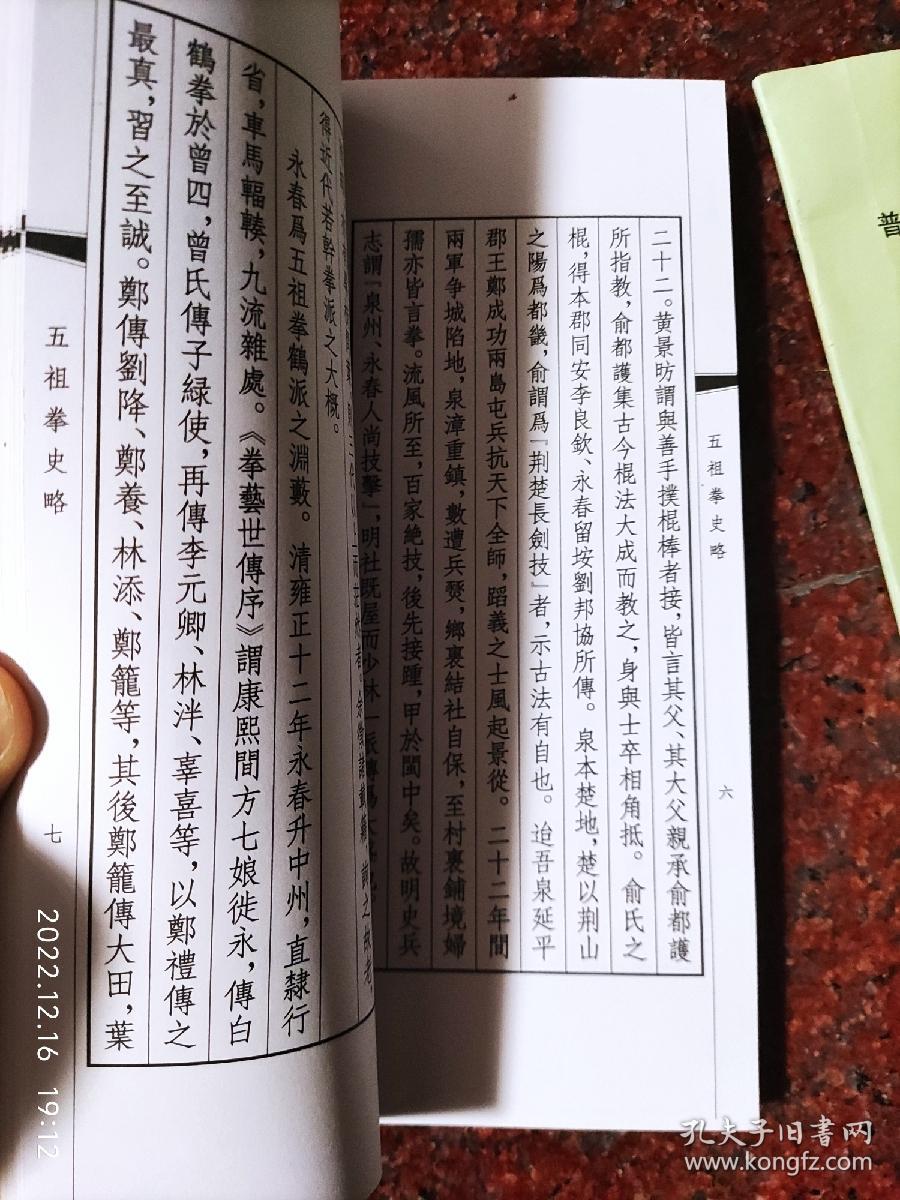 五祖拳史略
六
二十二。黄景昉謂與善手撲棍棒者接，皆言其父、其大父親承俞都護
所指教，俞都護集古今棍法大成而教之，身與士卒相角抵。俞氏之
棍，得本郡同安李良欽、永春留垵劉邦協所傳。泉本楚地，楚以荆山
之陽爲都畿，俞謂爲『荆楚長劍技』者，示古法有自也。迨吾泉延平
郡王鄭成功兩島屯兵抗天下全師，蹈義之士風起景從。二十二年間
兩軍争城陷地，泉漳重鎮，數遭兵燹，鄉裏結社自保，至村裏鋪境婦
孺亦皆言拳。流風所至，百家絶技，後先接踵，甲於閩中矣。故明史兵
志謂『泉州、永春人尚技擊』，明社既屋而少林一派
得近代若幹拳派之大概。
永春爲五祖拳鶴派之淵藪。清雍正十二年永春升中州，直隸行
省，車馬輻輳，九流雜處。《拳藝世傳序》謂康熙間方七娘徙永，傳白
鶴拳於曾四，曾氏傳子緑使，再傳李元卿、林泮、辜喜等，以鄭禮傳之
最真，習之至誠。鄭傳劉降、鄭養、林添、鄭籠等，其後鄭籠傳大田，葉
五祖拳史略
七
普
2022.12.16 19:12
孔夫子旧書网
www.kongfz.com